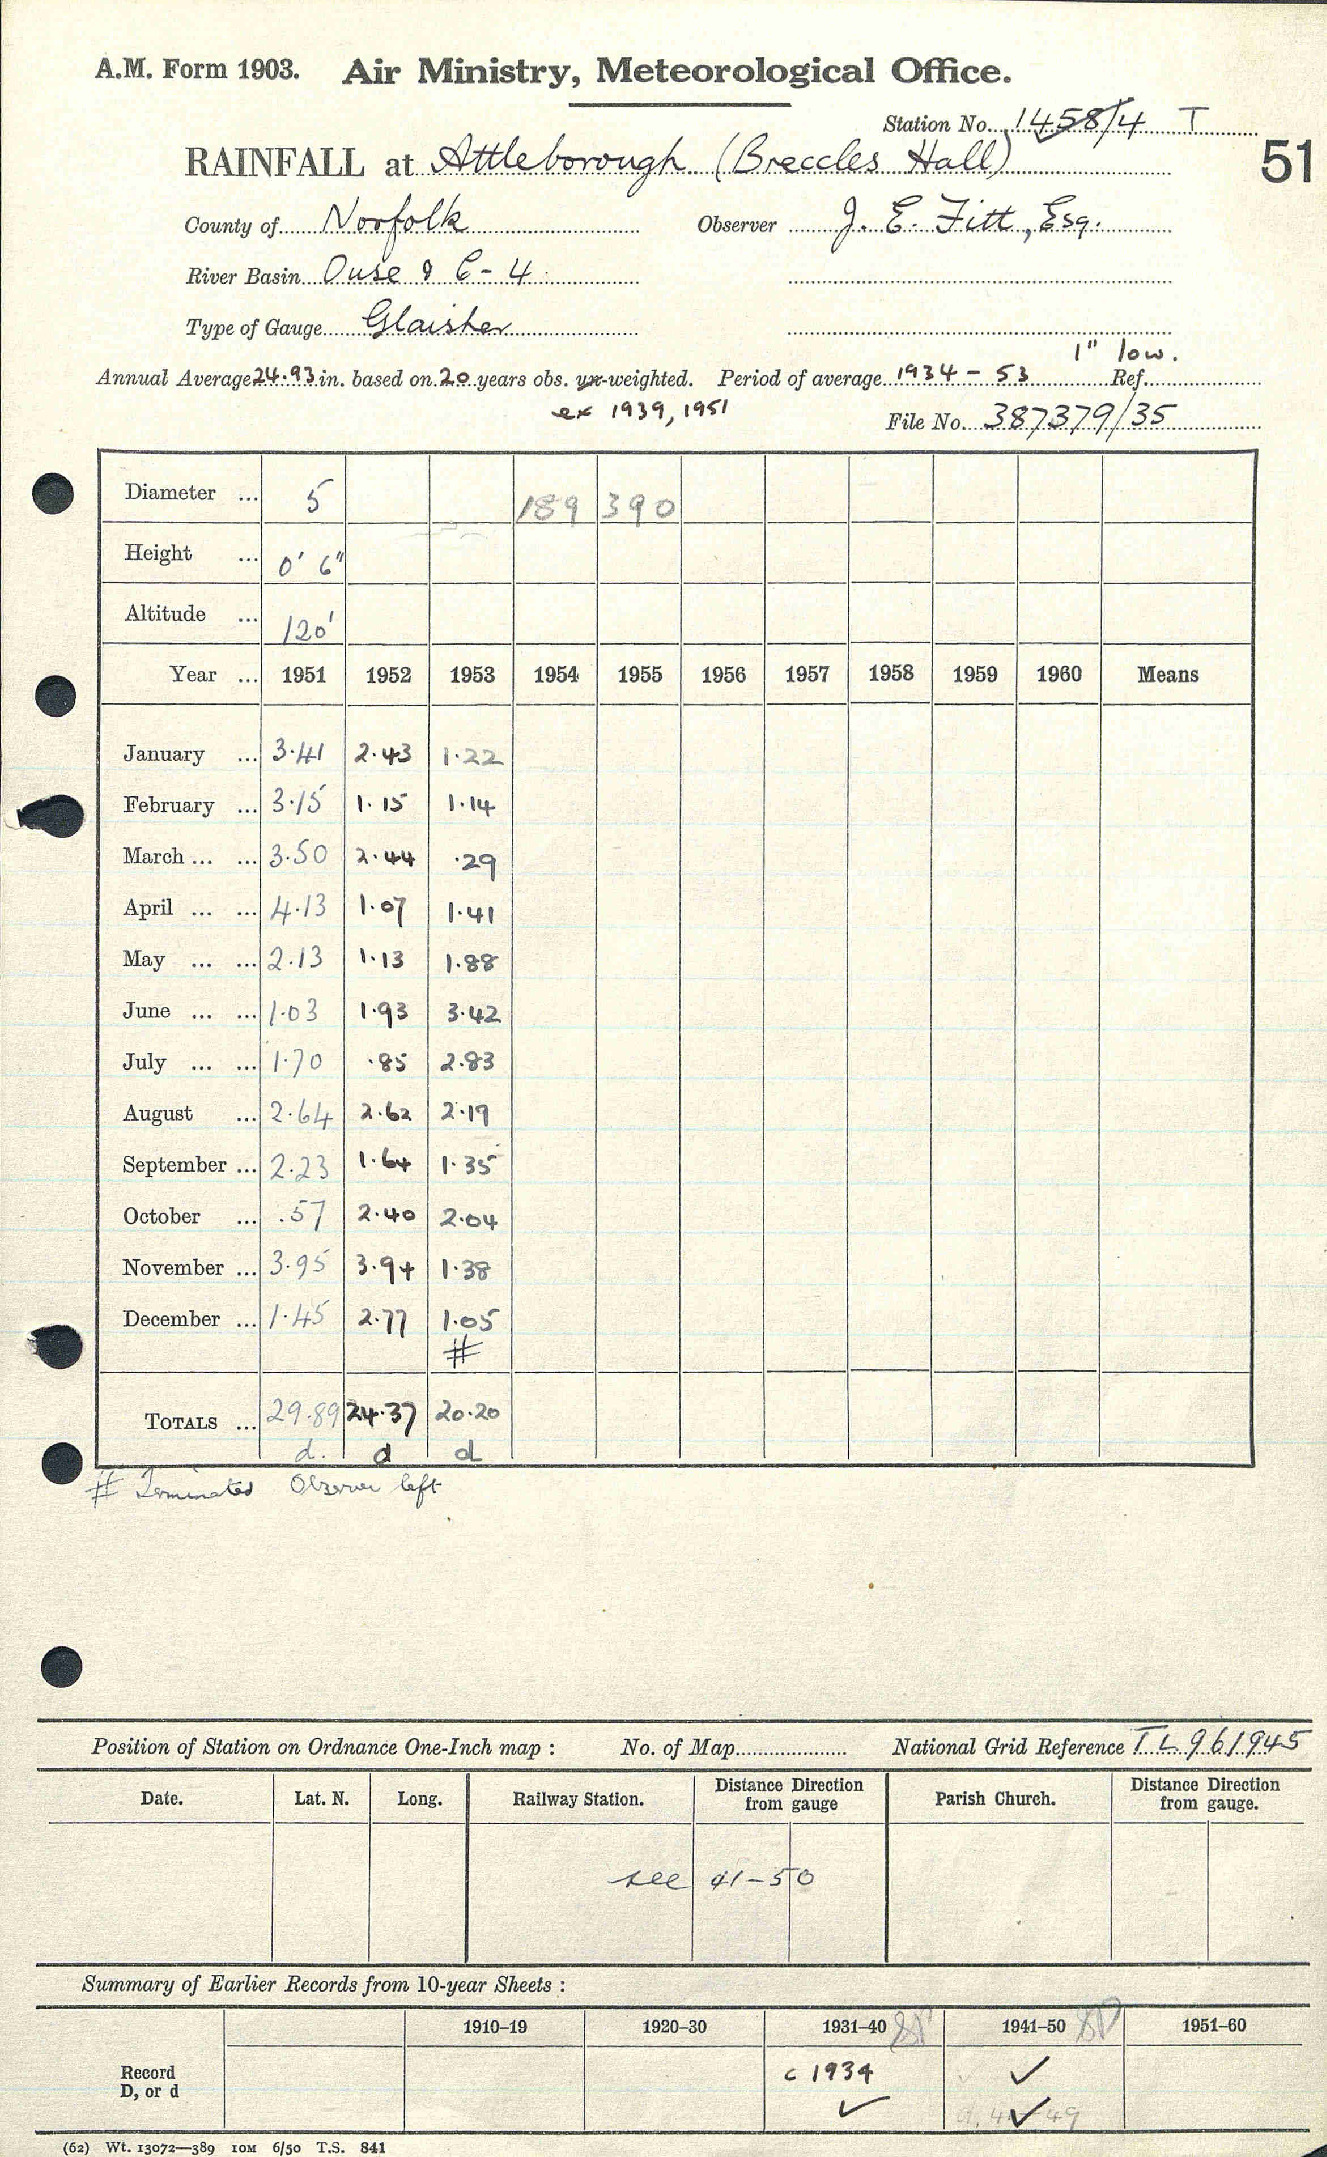 A.M. Form 1903. Air Ministry, Meteorological Office.
Station No. 1458/4 T
RAINFALL at Attleborough (Breccles Hall)
51
County of Norfolk Observer J. E. Fitt, Esq.
River Basin Ouse & C - 4
Type of Gauge Glaisher
1" low.
Annual Average 24.93 in. based on 20 years obs. un-weighted. Period of average 1934 - 53 Ref.
ex 1939, 1951
File No. 387379/35
Diameter ... 5 189 390
Height ... 0' 6"
Altitude ... 120'
Year ... 1951 1952 1953 1954 1955 1956 1957 1958 1959 1960 Means
January ... 3.41 2.43 1.22
February ... 3.15 1.15 1.14
March ... ... 3.50 2.44 .29
April ... ... 4.13 1.07 1.41
May ... ... 2.13 1.13 1.88
June ... ... 1.03 1.93 3.42
July ... ... 1.70 .85 2.83
August ... 2.64 2.62 2.19
September ... 2.23 1.64 1.35
October ... .57 2.40 2.04
November ... 3.95 3.94 1.38
December ... 1.45 2.77 1.05
#
TOTALS ... 29.89 24.37 20.20
d. d d
# Terminated Observer left
Position of Station on Ordnance One-Inch map : No. of Map National Grid Reference TL 961945
Date. Lat. N. Long. Railway Station. Distance Direction from gauge Parish Church. Distance Direction from gauge.
see 41-50
Summary of Earlier Records from 10-year Sheets :
1910-19 1920-30 1931-40 1941-50 1951-60
Record c 1934 ✓
D, or d ✓ ✓
(62) Wt. 13072—389 10M 6/50 T.S. 841